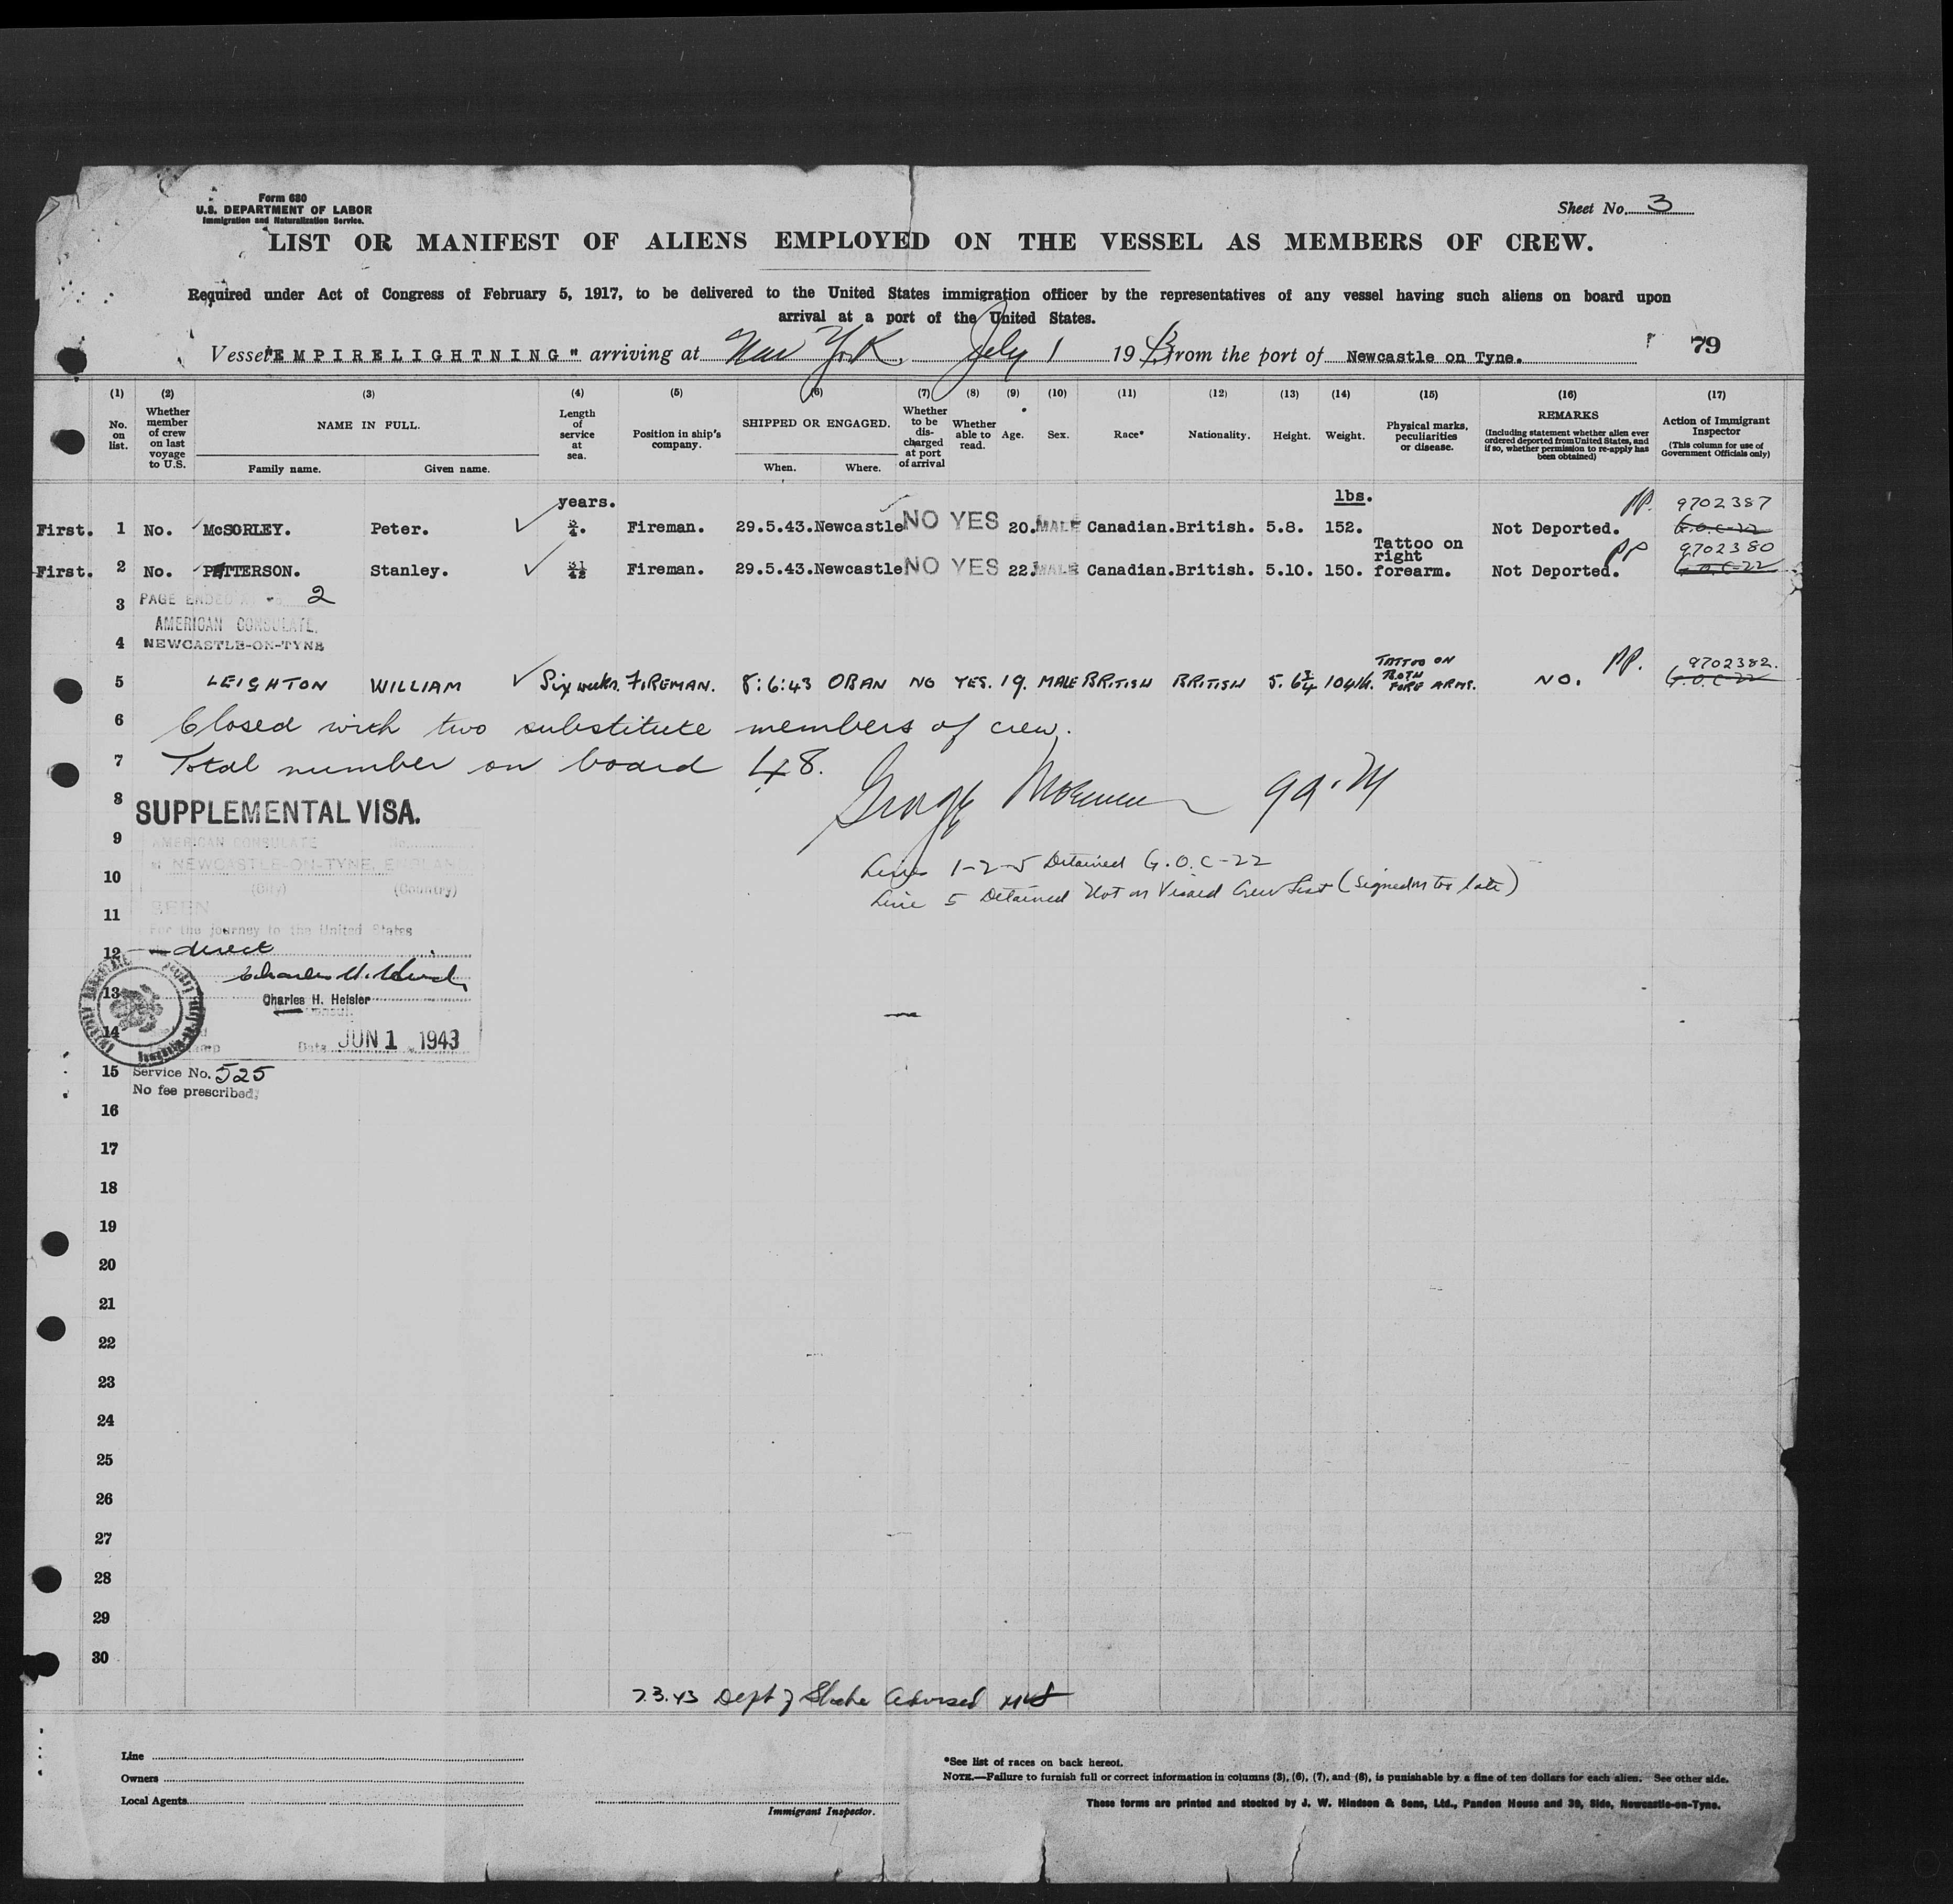 Form 680
U.S. DEPARTMENT OF LABOR
Immigration and Naturalization Service.
Sheet No. 3
LIST OR MANIFEST OF ALIENS EMPLOYED ON THE VESSEL AS MEMBERS OF CREW.
Required under Act of Congress of February 5, 1917, to be delivered to the United States immigration officer by the representatives of any vessel having such aliens on board upon
arrival at a port of the United States.
Vessel "EMPIRELIGHTNING" arriving at New York, July 1 1943 from the port of Newcastle on Tyne. 79
(1) (2) (3) (4) (5) (6) (7) (8) (9) (10) (11) (12) (13) (14) (15) (16) (17)
No. on list. Whether member of crew on last voyage to U.S. NAME IN FULL. Family name. Given name. Length of service at sea. Position in ship's company. SHIPPED OR ENGAGED. When. Where. Whether to be discharged at port of arrival Whether able to read. Age. Sex. Race* Nationality. Height. Weight. Physical marks, peculiarities or disease. REMARKS (Including statement whether alien ever ordered deported from United States, and if so, whether permission to re-apply has been obtained) Action of Immigrant Inspector (This column for use of Government Officials only)
years. lbs.
First. 1 No. McSORLEY. Peter. Fireman. 29.5.43. Newcastle NO YES 20. MALE Canadian. British. 5.8. 152. Not Deported. PP. 9702387 G.O.C-22
First. 2 No. PATTERSON. Stanley. Fireman. 29.5.43. Newcastle NO YES 22. MALE Canadian. British. 5.10. 150. Tattoo on right forearm. Not Deported. PP 9702380 G.O.C-22
3 PAGE ENDED 2
AMERICAN CONSULATE,
4 NEWCASTLE-ON-TYNE
5 LEIGHTON WILLIAM Six weeks. FIREMAN. 8:6:43 OBAN NO YES. 19. MALE BRITISH BRITISH 5. 6 3/4 TATTOO ON BOTH FORE ARMS. NO. PP. 9702382. G.O.C-22
6 Closed with two substitute members of crew.
7 Total number on board 48.
8 SUPPLEMENTAL VISA.
9 AMERICAN CONSULATE No.
NEWCASTLE-ON-TYNE, ENGLAND
10 (City) (Country)
11 SEEN
For the journey to the United States
12 direct
13 Charles H. Heisler
Consul
14 Date JUN 1 1943
15 Service No. 525
No fee prescribed.
Lines 1-2-5 Detained G.O.C-22
Line 5 Detained Not on Visaed Crew List (Signed on too late)
16
17
18
19
20
21
22
23
24
25
26
27
28
29
30
7.3.43 Dept of State advised
Line
Owners
Local Agents
Immigrant Inspector.
*See list of races on back hereof.
NOTE.—Failure to furnish full or correct information in columns (3), (6), (7), and (8), is punishable by a fine of ten dollars for each alien. See other side.
These forms are printed and stocked by J. W. Hindson & Sons, Ltd., Pandon House and 39, Side, Newcastle-on-Tyne.